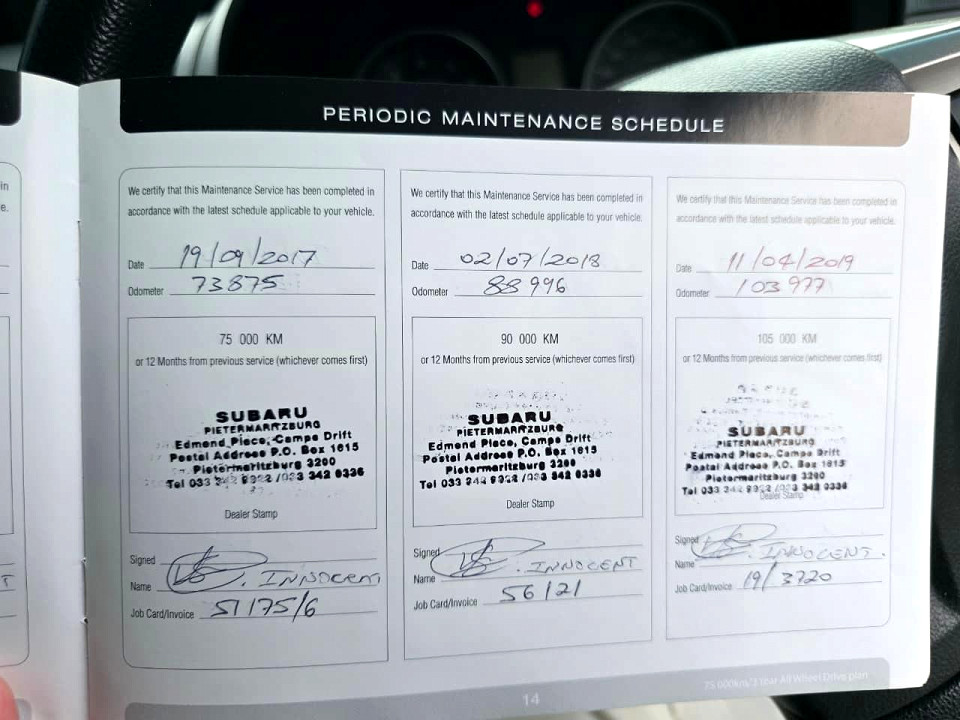 PERIODIC MAINTENANCE SCHEDULE
We certify that this Maintenance Service has been completed in
accordance with the latest schedule applicable to your vehicle.
Date 19/09/2017
Odometer 73875
75 000 KM
or 12 Months from previous service (whichever comes first)
SUBARU
PIETERMARITZBURG
Edmond Place, Camps Drift
Postal Address P.O. Box 1615
Pietermaritzburg 3200
Tel 033 342 0336
Dealer Stamp
Signed
Name INNOCENT
Job Card/Invoice 51175/6
We certify that this Maintenance Service has been completed in
accordance with the latest schedule applicable to your vehicle.
Date 02/07/2018
Odometer 88996
90 000 KM
or 12 Months from previous service (whichever comes first)
SUBARU
PIETERMARITZBURG
Edmond Place, Camps Drift
Postal Address P.O. Box 1615
Pietermaritzburg 3200
Tel 033 342 0336
Dealer Stamp
Signed
Name INNOCENT
Job Card/Invoice 56/21
We certify that this Maintenance Service has been completed in
accordance with the latest schedule applicable to your vehicle.
Date 11/04/2019
Odometer 103977
105 000 KM
or 12 Months from previous service (whichever comes first)
SUBARU
PIETERMARITZBURG
Edmond Place, Camps Drift
Postal Address P.O. Box 1615
Pietermaritzburg 3200
Tel 033 342 0336
Dealer Stamp
Signed
Name INNOCENT.
Job Card/Invoice 19/3720
14
75 000km/3 Year All Wheel Drive plan